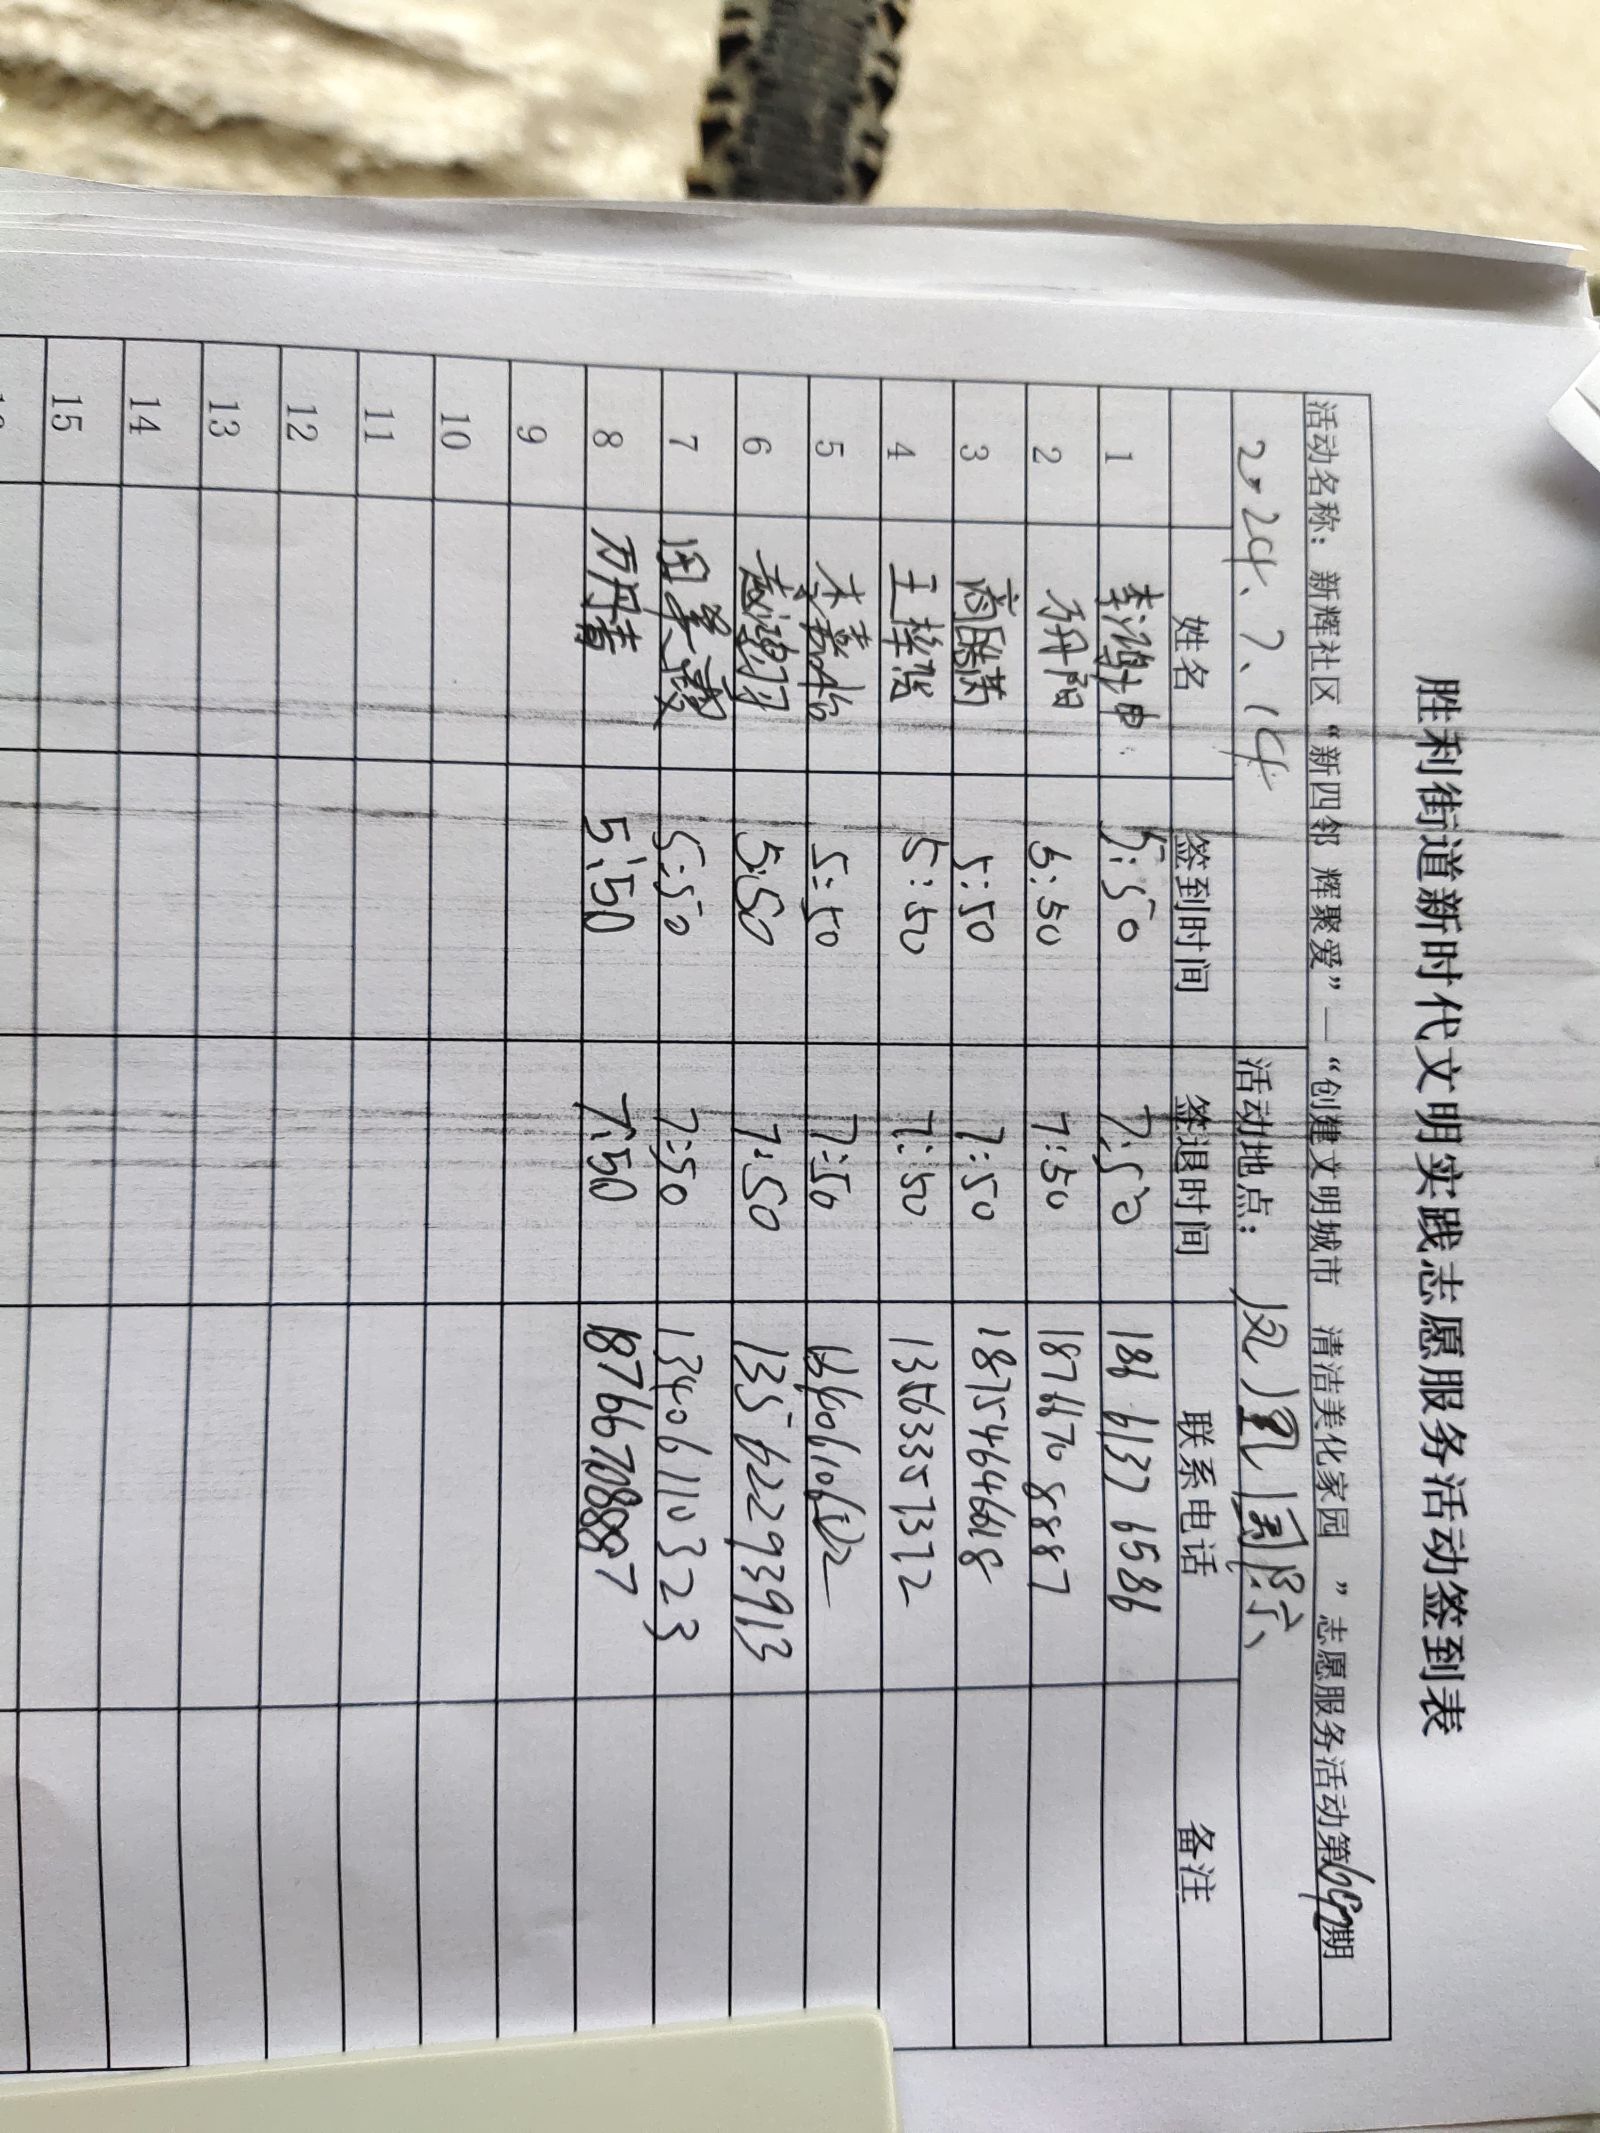 胜利街道新时代文明实践志愿服务活动签到表
活动名称：新辉社区“新四邻 辉聚爱”—“创建文明城市 清洁美化家园 ”志愿服务活动第期
2024、7、14 活动地点：
姓名 签到时间 签退时间 联系电话 备注
1 李鸿坤 5:50 7:50 186 6137 6586
2 万丹阳 5:50 7:50 18766708887
3 5:50 7:50 18754646618
4 王 5:50 7:50
5 5:50 7:50
6 赵 5:50 7:50 13562293913
7 田 5:50 7:50 13406110323
8 万丹青 5:50 7:50 18766708887
9
10
11
12
13
14
15